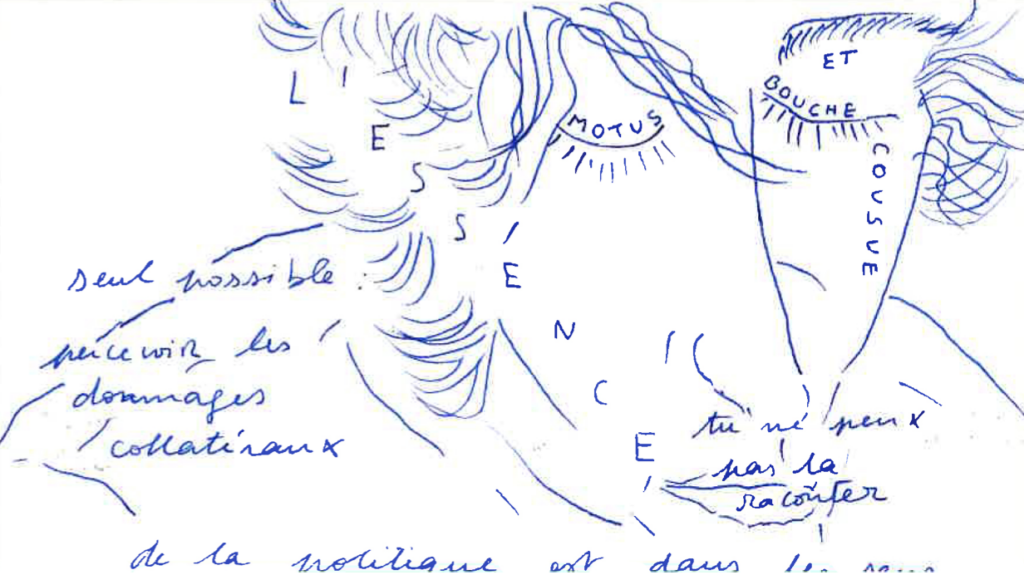 L'ESSENCE
MOTUS
ET
BOUCHE
COUSUE
seul possible :
percevoir les
dommages
collatéraux
tu ne peux
pas la
raconter
de la politique est dans les